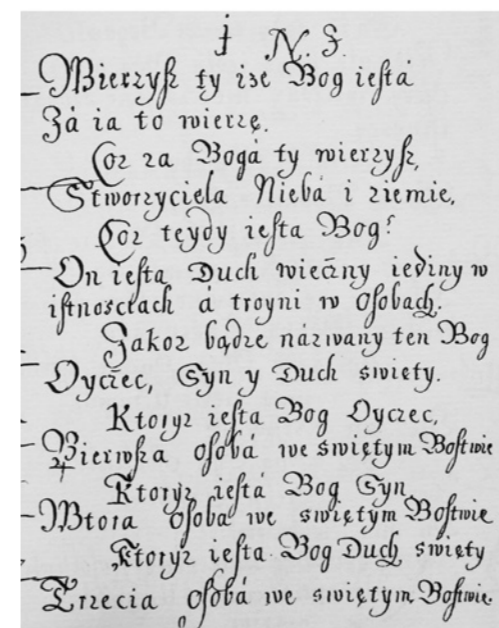 J N. J.
Wierzyſz ty ize Bog ieſtá
Já ia to wierzę.
Coz za Bogá ty wierzyſz,
Stworzyciela Niebá i ziemie,
Coz teydy ieſta Bog?
On ieſta Duch wiecżny iediny w
iſtnosctach á troyni w Oſobach.
Jakoz bądze názwany ten Bog
Oyczec, Syn y Duch swięty.
Ktoryz ieſta Bog Oyczec,
Pierwſza oſobá we swiętym Boſtwie
Ktoryz ieſtá Bog Syn
Wtora oſoba we swiętym Boſtwie
Ktoryz ieſta Bog Duch swięty
Trzecia oſobá we swiętym Boſtwie.